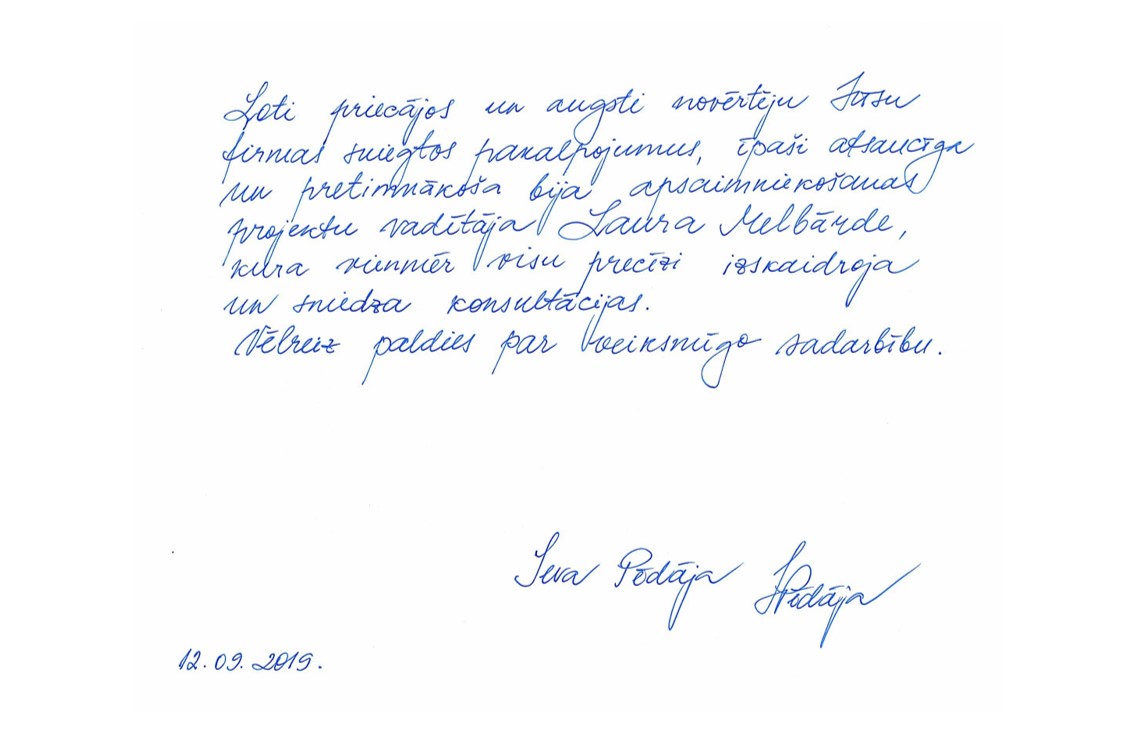 Ļoti priecājos un augsti novērtēju Jūsu
firmas sniegtos pakalpojumus, īpaši atsaucīga
un pretimnākoša bija apsaimniekošanas
projektu vadītāja Laura Melbārde,
kura vienmēr visu precīzi izskaidroja
un sniedza konsultācijas.
Vēlreiz paldies par veiksmīgo sadarbību.
Ieva Pēdāja IPēdāja
12.09.2019.